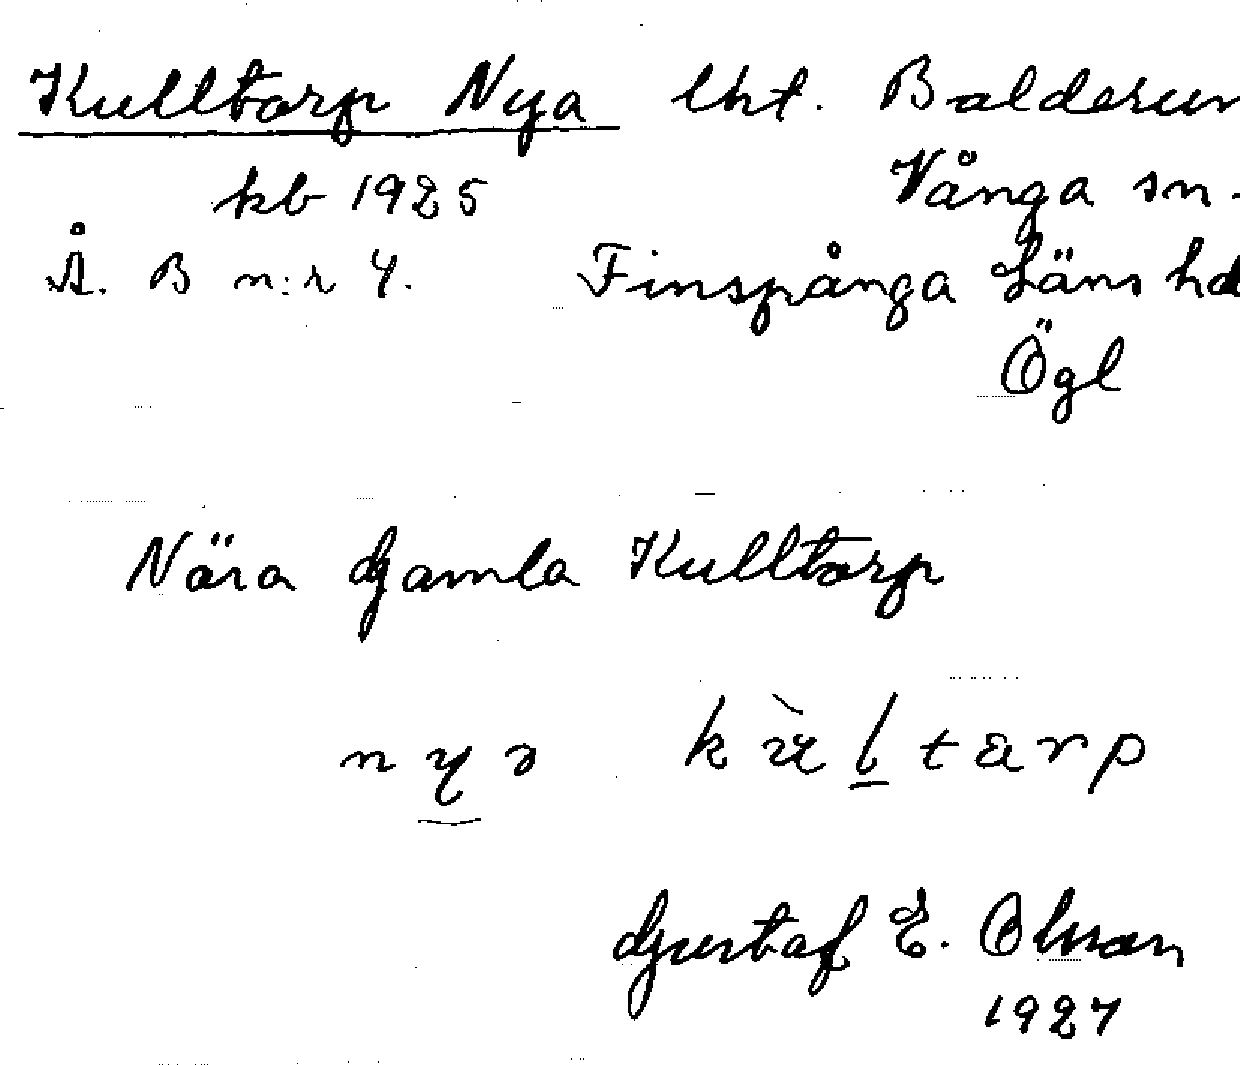 Kulltorp Nya lht. Balderum
kb 1925 Vånga sn.
Å. B n:r 4. Finspånga läns hd
Ögl
Nära Gamla Kulltorp
nyə kùltarp
Gustaf E. Olsson
1927